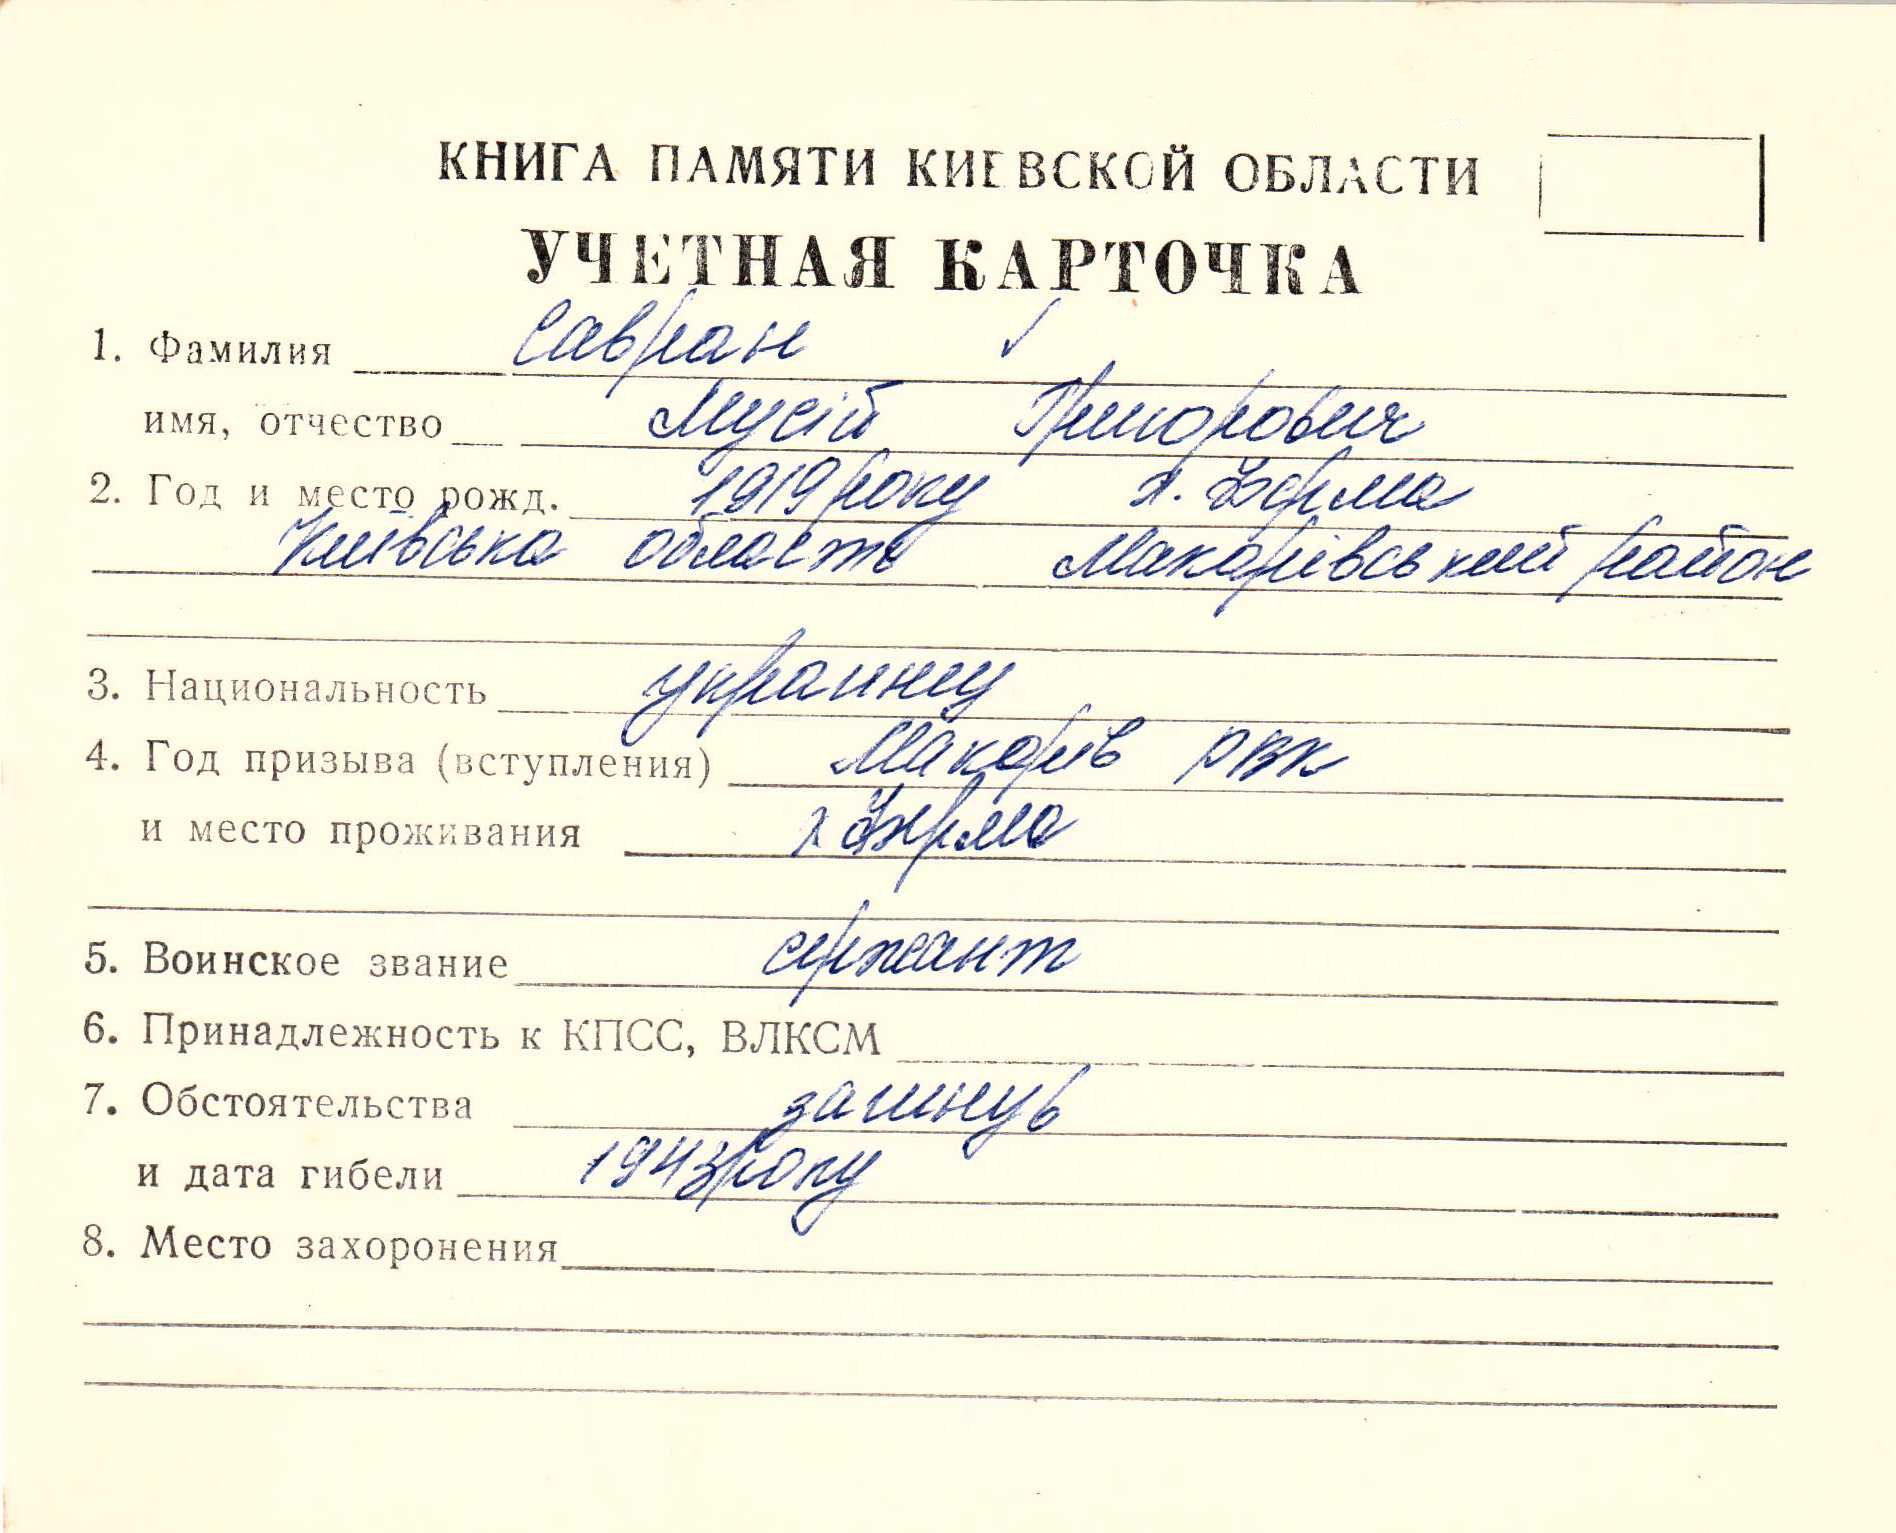 КНИГА ПАМЯТИ КИЕВСКОЙ ОБЛАСТИ
УЧЕТНАЯ КАРТОЧКА
1. Фамилия Савран ✓
имя, отчество Мусій Григорович
2. Год и место рожд. 1919 року х.
Київська область Макарівський район
3. Национальность
4. Год призыва (вступления) Макарів РВК
и место проживания х.
5. Воинское звание сержант
6. Принадлежность к КПСС, ВЛКСМ
7. Обстоятельства загинув
и дата гибели 1943 року
8. Место захоронения